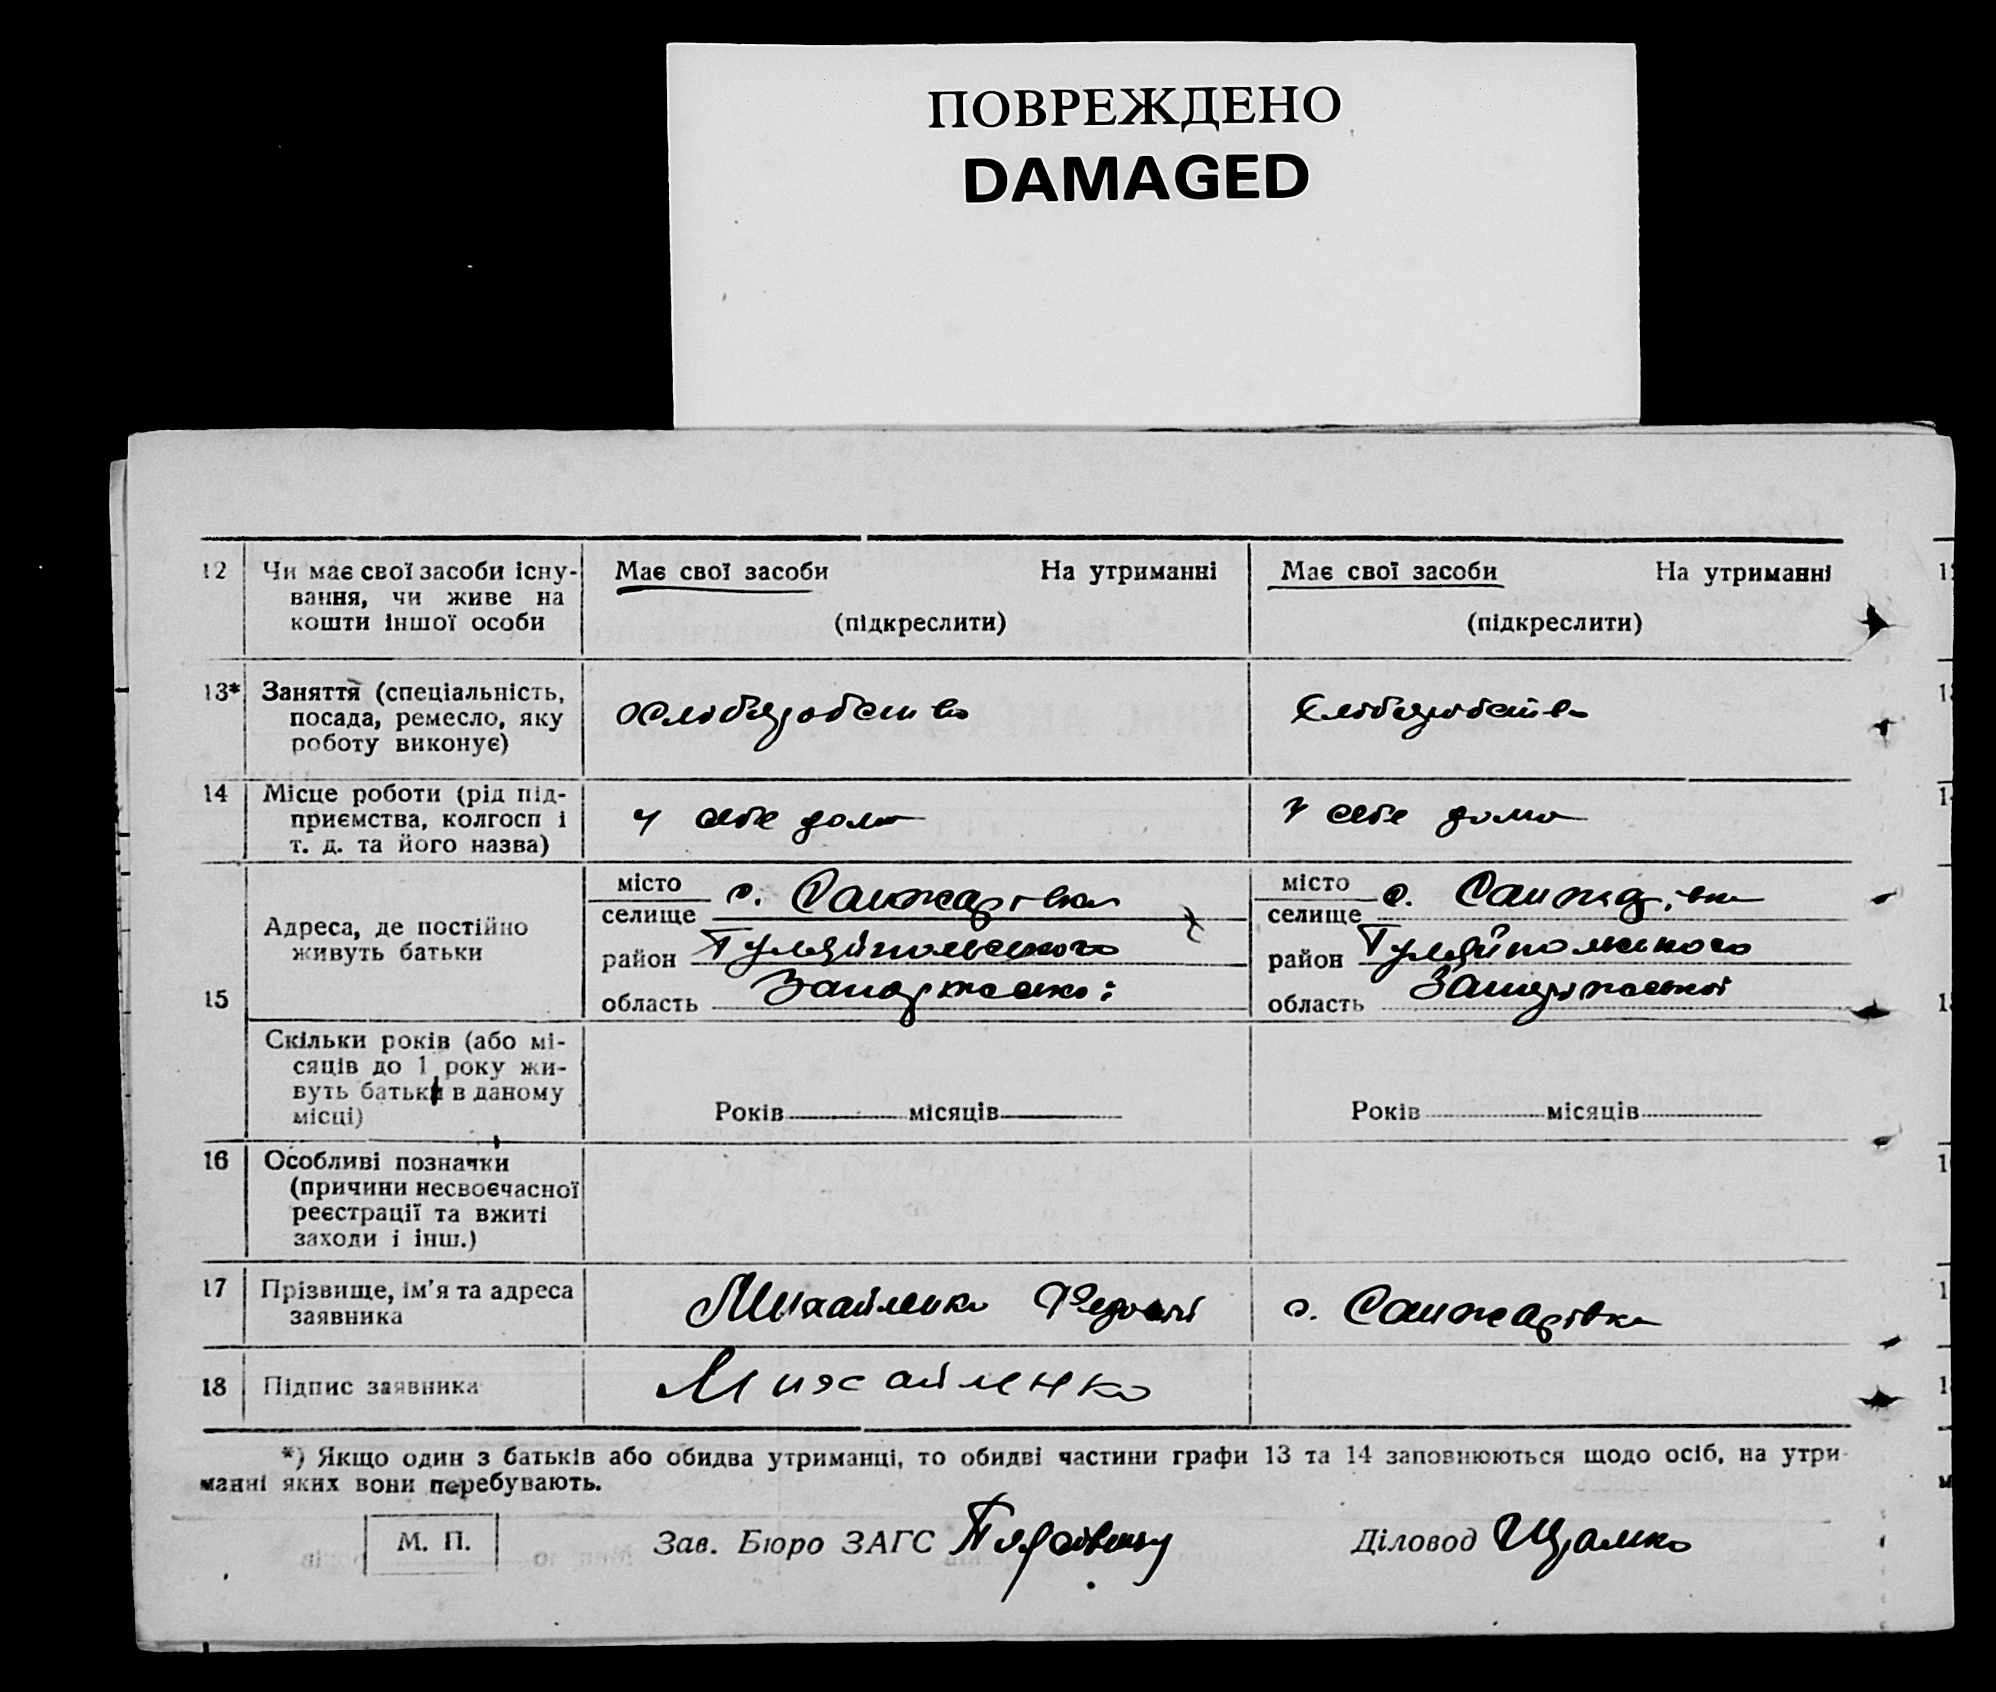 ПОВРЕЖДЕНО
DAMAGED
12 Чи має свої засоби існу-
вання, чи живе на
кошти іншої особи
Має свої засоби На утриманні
(підкреслити)
Має свої засоби На утриманні
(підкреслити)
13* Заняття (спеціальність,
посада, ремесло, яку
роботу виконує)
Хліборобство
Хліборобство
14 Місце роботи (рід під-
приємства, колгосп і
т. д. та його назва)
у себе дома
у себе дома
15 Адреса, де постійно
живуть батьки
місто
селище с. Санжарівка
район Гуляйпольського
область Запорізької
місто
селище с. Санжарівка
район Гуляйпольського
область Запорізької
Скільки років (або мі-
сяців до 1 року жи-
вуть батьки в даному
місці)
Років місяців
Років місяців
16 Особливі позначки
(причини несвоєчасної
реєстрації та вжиті
заходи і інш.)
17 Прізвище, ім'я та адреса
заявника
Михайленко Федосій с. Санжарівка
18 Підпис заявника
Михайленко
*) Якщо один з батьків або обидва утриманці, то обидві частини графи 13 та 14 заповнюються щодо осіб, на утри-
манні яких вони перебувають.
М. П. Зав. Бюро ЗАГС Діловод